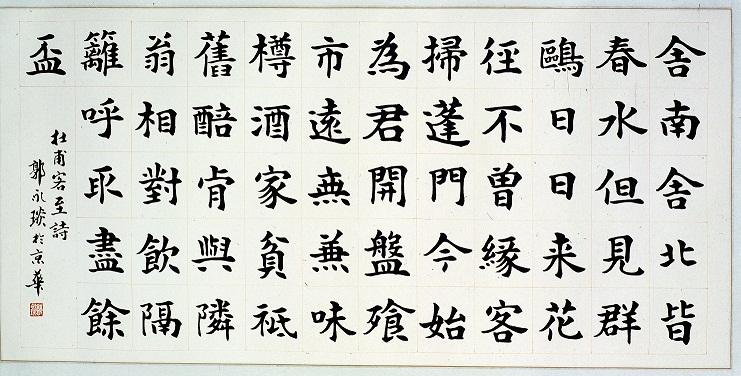 舍南舍北皆
春水但見群
鷗日日来花
徑不曽緣客
掃蓬門今始
為君開盤飱
市遠無兼味
樽酒家貧祗
舊醅肯與隣
翁相對飲隔
籬呼取盡餘
盃
杜甫客至詩
郭永琰於京華